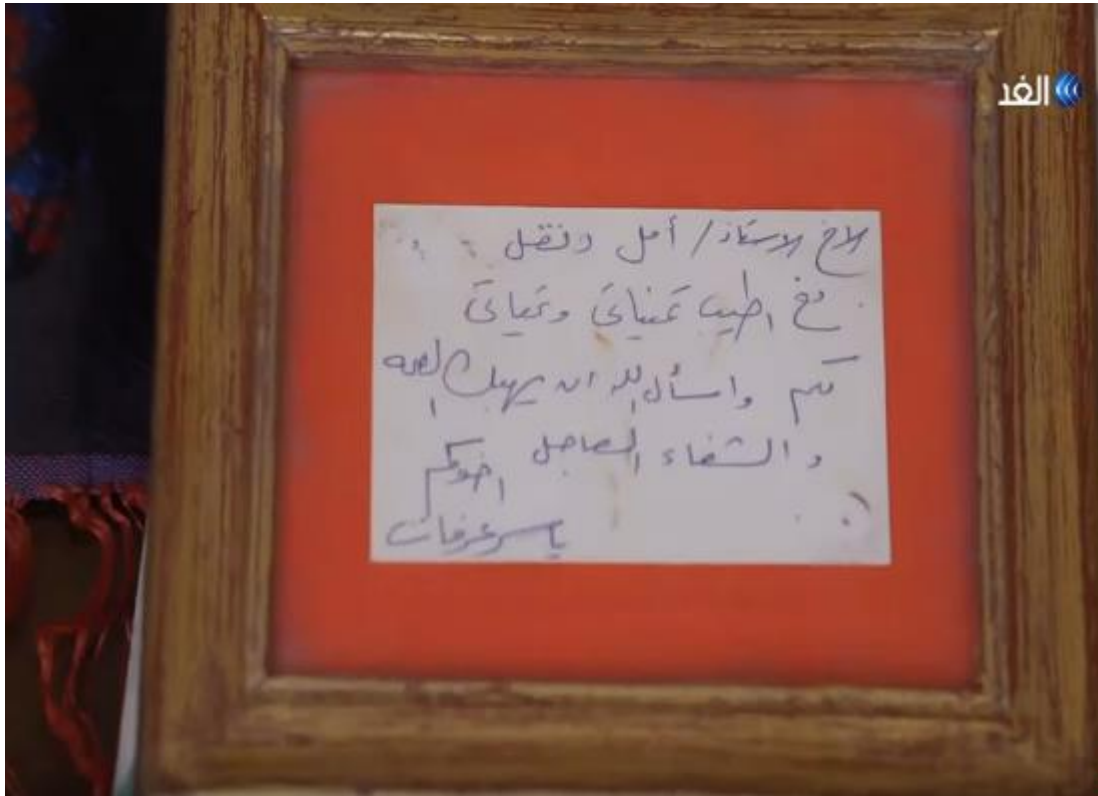 الغد
الاخ الاستاذ/ أمل دنقل
مع اطيب تمنياتى وتحياتى
لكم واسأل الله ان يهبك الصحه
والشفاء العاجل
اخوكم
ياسر عرفات